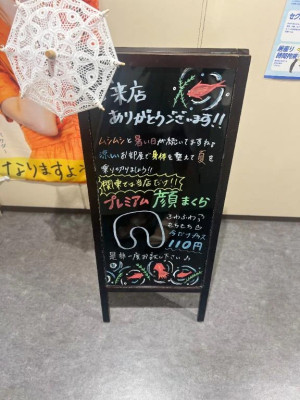 来店
ありがとうございます!!
ムシムシと暑い日が続いてますねぇ
涼しいお部屋で身体を整えて夏を
乗りりきりましょう!!
関東では当店だけ!!
プレミアム顔まくら
ふわふわっ
もちもち
今だけプラス
110円
是非一度お試し下さい♪
なりますよ